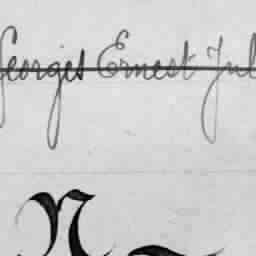 Georges Ernest Jul
N